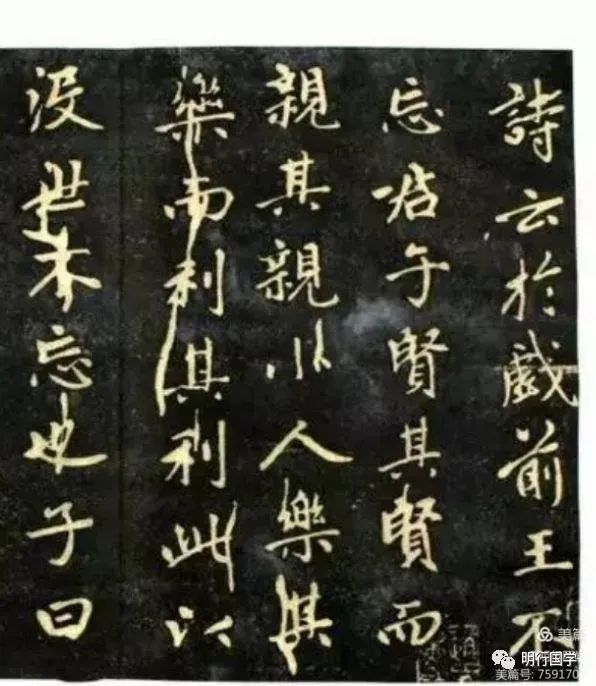 詩云於戲前王不
忘君子賢其賢而
親其親小人樂其
樂而利其利此以
没世不忘也子曰
美篇
明行国学
美篇号: 759170